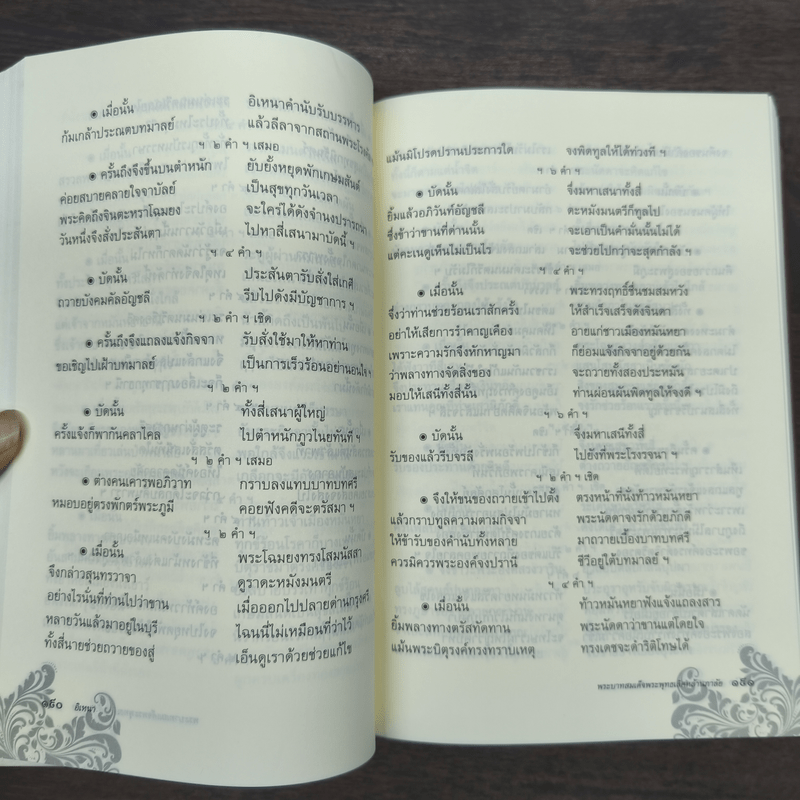 ๏ เมื่อนั้น อิเหนาคำนับรับบรรหาร
ก้มเกล้าประณตบทมาลย์ แล้วลีลาจากสถานพระโรง
ฯ ๒ คำ ฯ เสมอ
๏ ครั้นถึงจึงขึ้นบนตำหนัก ยับยั้งหยุดพักเกษมสันต์
ค่อยสบายคลายใจจาบัลย์ เป็นสุขทุกวันเวลา
พระคิดถึงจินตะหราโฉมยง จะใคร่ได้ดังจำนงปรารถนา
วันหนึ่งจึงสั่งประสันตา ไปหาสี่เสนามาบัดนี้ ฯ
ฯ ๔ คำ ฯ
๏ บัดนั้น ประสันตารับสั่งใส่เกศี
ถวายบังคมคัลอัญชลี รีบไปดังมีบัญชาการ ฯ
ฯ ๒ คำ ฯ เชิด
๏ ครั้นถึงจึงแถลงแจ้งกิจจา รับสั่งใช้มาให้หาท่าน
ขอเชิญไปเฝ้าบทมาลย์ เป็นการเร็วร้อนอย่านอนใจ ฯ
ฯ ๒ คำ ฯ
๏ บัดนั้น ทั้งสี่เสนาผู้ใหญ่
ครั้งแจ้งก็พากันคลาไคล ไปตำหนักภูวไนยทันที ฯ
ฯ ๒ คำ ฯ เสมอ
๏ ต่างคนเคารพอภิวาท กราบลงแทบบาทบทศรี
หมอบอยู่ตรงพักตร์พระภูมี คอยฟังคดีจะตรัสมา ฯ
ฯ ๒ คำ ฯ
๏ เมื่อนั้น พระโฉมยงทรงโสมนัสสา
จึงกล่าวสุนทรวาจา ดูราดะหมังมนตรี
อย่างไรนั่นที่ท่านไปว่าขาน เมื่อออกไปปลายด่านกรุงศรี
หลายวันแล้วมาอยู่ในบุรี ไฉนนี่ไม่เหมือนที่ว่าไว้
ทั้งสี่นายช่วยถวายของสู่ เอ็นดูเราด้วยช่วยแก้ไข
๑๕๐ อิเหนา
แม้นมิโปรดปรานประการใด จงพิดทูลให้ได้ท่วงที ฯ
ฯ ๖ คำ ฯ
๏ บัดนั้น จึ่งมหาเสนาทั้งสี่
ยิ้มแล้วอภิวันท์อัญชลี ดะหมังมนตรีก็ทูลไป
ซึ่งข้าว่าขานที่ด่านนั้น จะเอาเป็นคำมั่นนั้นไม่ได้
แต่คะเนดูเห็นไม่เป็นไร จะช่วยไปกว่าจะสุดกำลัง ฯ
ฯ ๔ คำ ฯ
๏ เมื่อนั้น พระทรงฤทธิ์ชื่นชมสมหวัง
ซึ่งว่าท่านช่วยร้อนเราสักครั้ง ให้สำเร็จเสร็จดังจินดา
อย่าให้เสียการรำคาญเคือง อายแก่ชาวเมืองหมันหยา
เพราะความรักจึงหักหาญมา ก็ย่อมแจ้งกิจจาอยู่ด้วยกัน
ว่าพลางทางจัดสิ่งของ จะถวายทั้งสองประหมัน
มอบให้เสนีทั้งสี่นั้น ท่านผ่อนผันพิดทูลให้จงดี ฯ
ฯ ๖ คำ ฯ
๏ บัดนั้น จึ่งมหาเสนีทั้งสี่
รับของแล้วรีบจรลี ไปยังที่พระโรงรจนา ฯ
ฯ ๒ คำ ฯ เชิด
๏ จึงให้ขนของถวายเข้าไปตั้ง ตรงหน้าที่นั่งท้าวหมันหยา
แล้วกราบทูลความตามกิจจา พระนัดดาจงรักด้วยภักดี
ให้ข้ารับของคำนับทั้งหลาย มาถวายเบื้องบาทบทศรี
ควรมิควรพระองค์จงปรานี ชีวีอยู่ใต้บทมาลย์ ฯ
ฯ ๔ คำ ฯ
๏ เมื่อนั้น ท้าวหมันหยาฟังแจ้งแถลงสาร
ยิ้มพลางทางตรัสทัดทาน พระนัดดาว่าขานแต่โดยใจ
แม้นพระบิตุรงค์ทรงทราบเหตุ ทรงเดชจะดำริติโทษได้
พระบาทสมเด็จพระพุทธเลิศหล้านภาลัย ๑๕๑